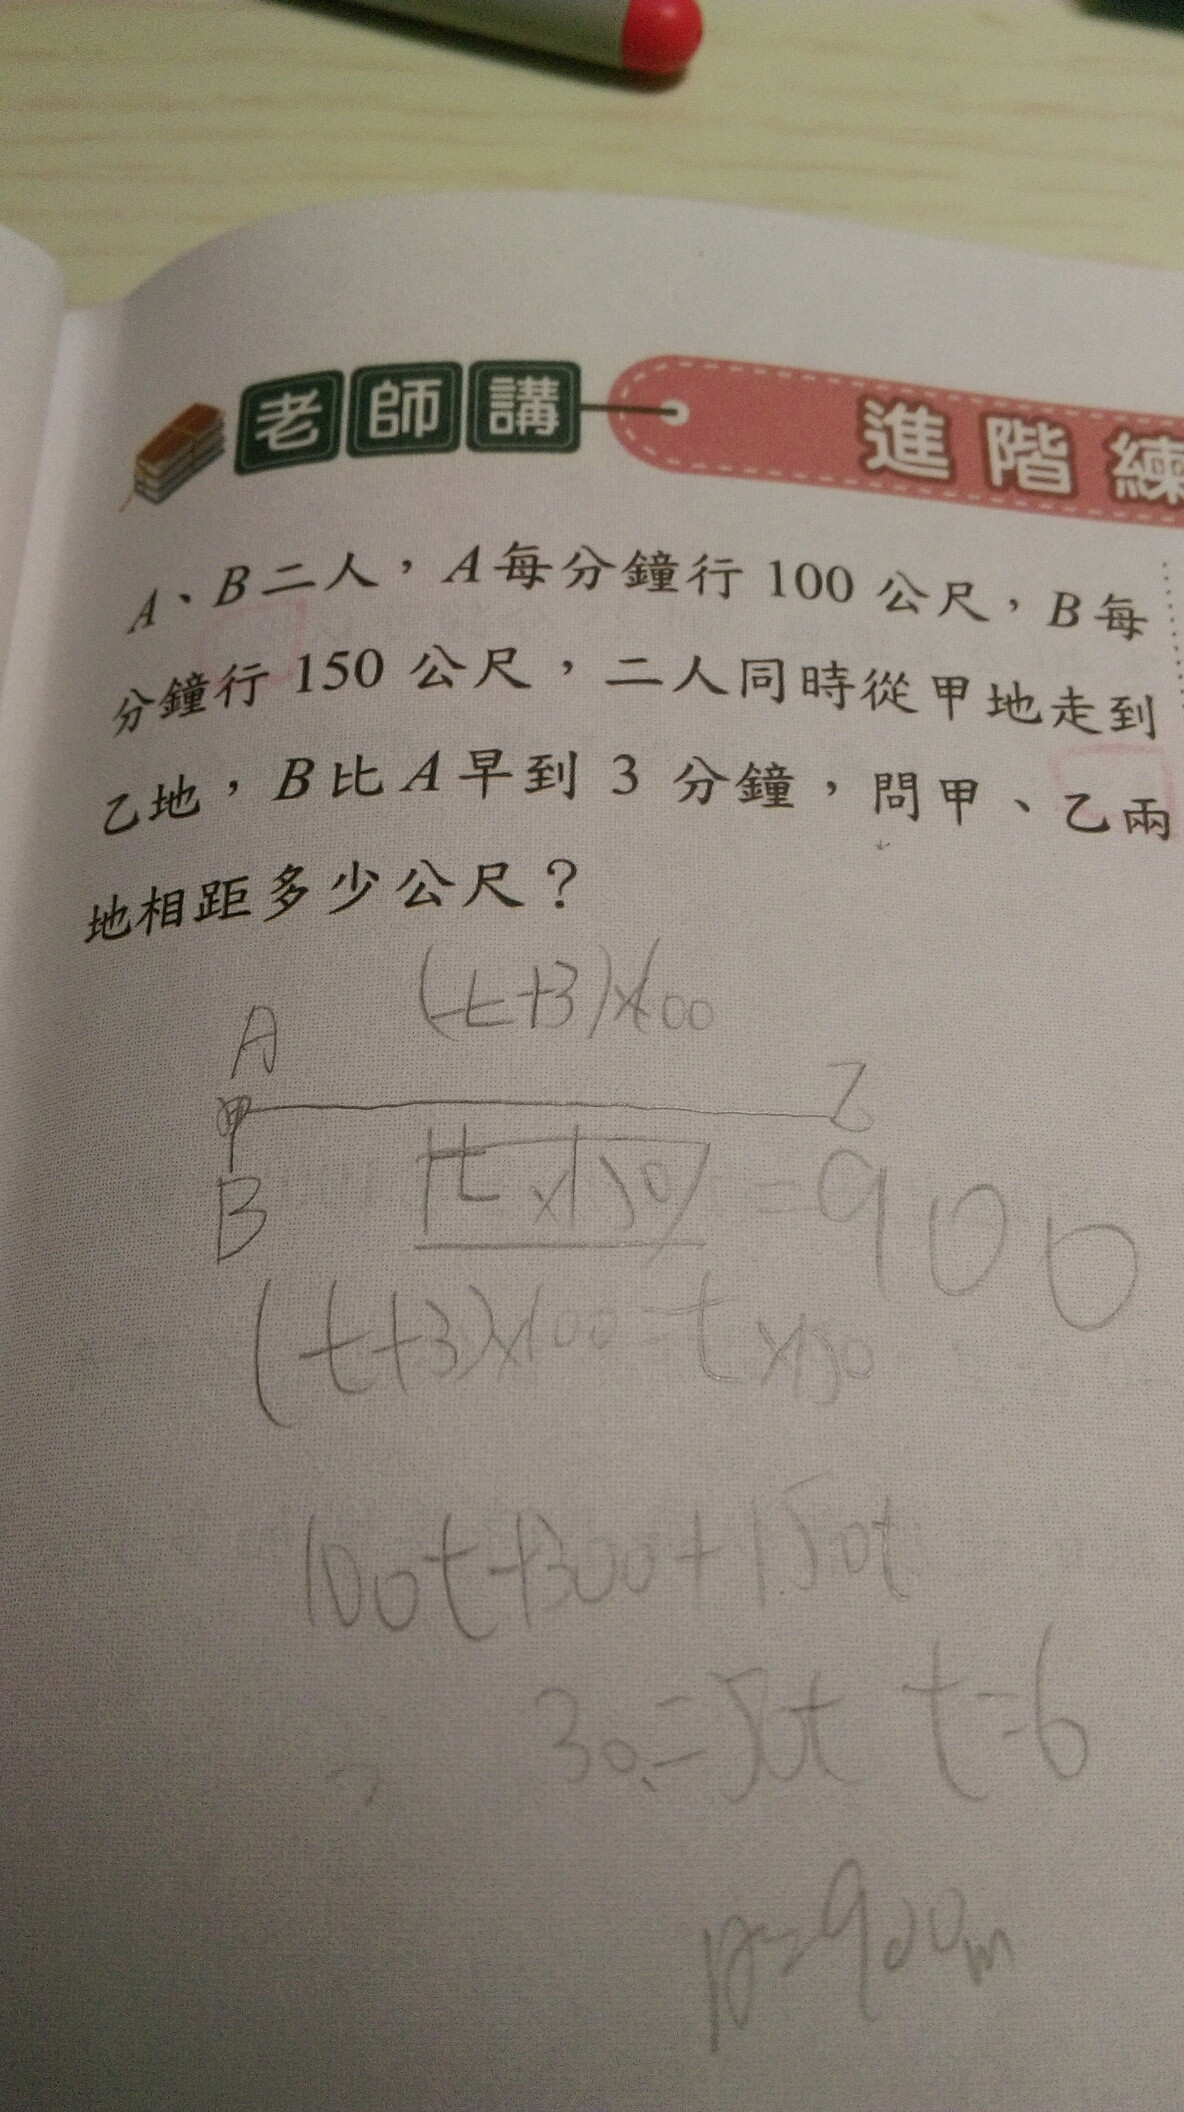 老師講 進階練
A、B二人，A每分鐘行 100 公尺，B每
分鐘行 150 公尺，二人同時從甲地走到
乙地，B比A早到 3 分鐘，問甲、乙兩
地相距多少公尺？
(t+3)×100
A
甲 乙
t×150 = 900
B
(t+3)×100=t×150
100t+300+150t
300=50t t=6
=900m